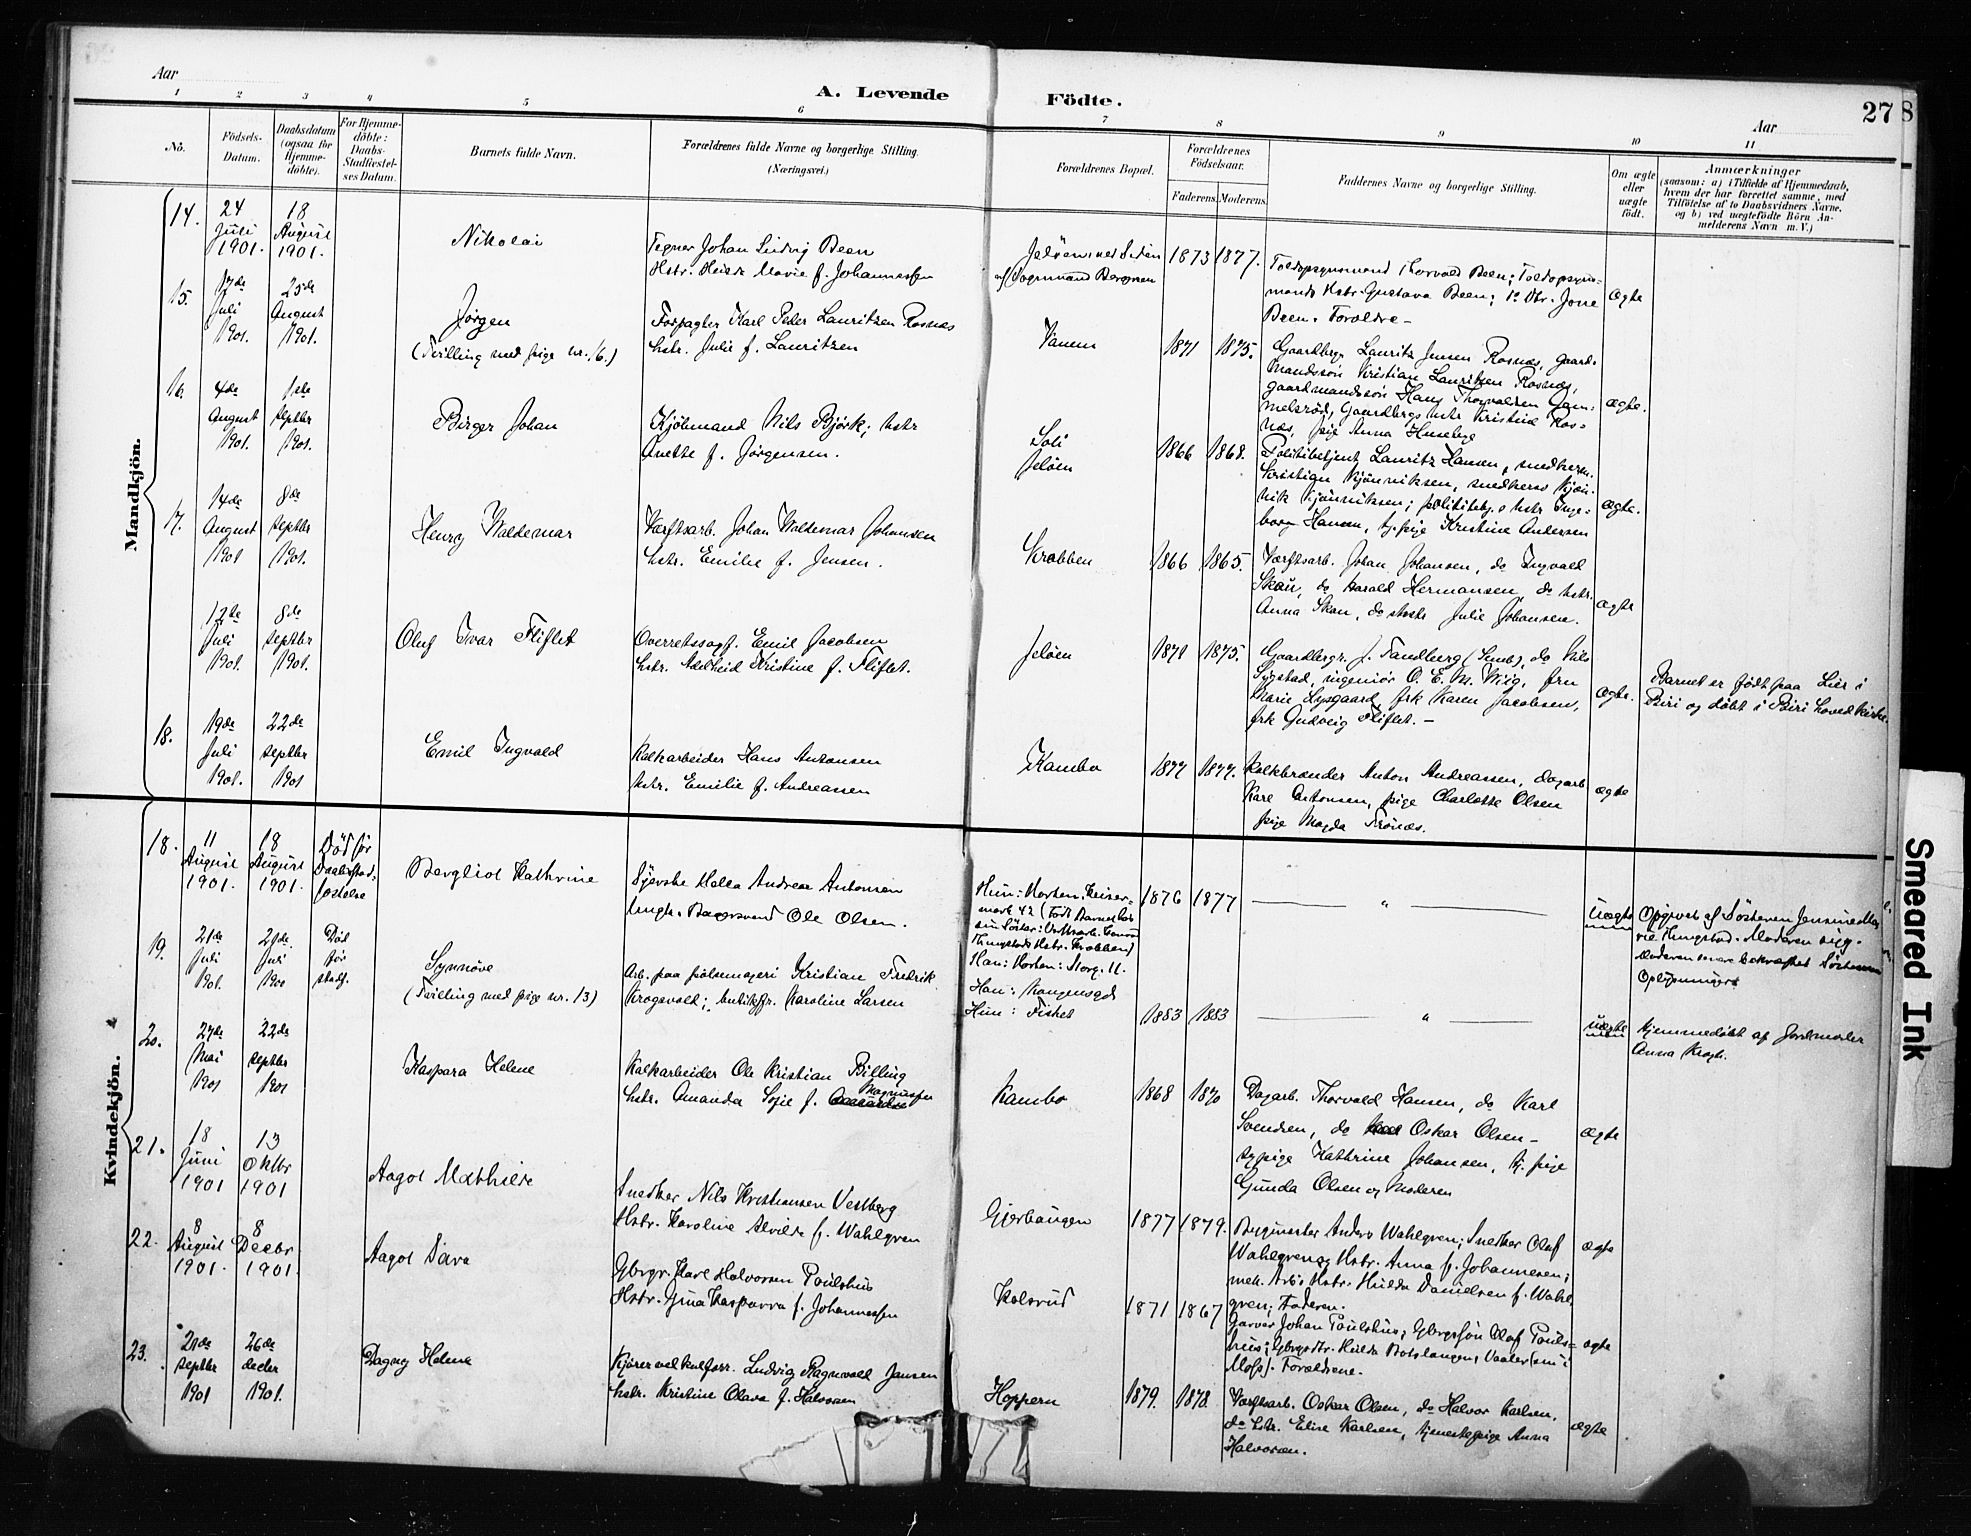 Aar
A. Levende Födte.
27
8
Aar
1 2 3 4 5 6 7 8 9 10 11
No.
Födsels-
Datum.
Daabsdatum
(ogsaa för
Hjemme-
döbte).
For Hjemme-
döbte:
Daabs-
Stadfæstel-
ses Datum.
Barnets fulde Navn.
Forældrenes fulde Navne og borgerlige Stilling.
(Næringsvei.)
Forældrenes Bopæl.
Forældrenes
Födselsaar.
Faderens. Moderens.
Faddernes Navne og borgerlige Stilling.
Om ægte
eller
uægte
födt.
Anmærkninger
(saasom: a) i Tilfælde af Hjemmedaab,
hvem der har forrettet samme, med
Tilföielse af to Daabsvidners Navne,
og b) ved uegtefödte Börn An-
melderens Navn m. V.)
Mandkjön.
14.
24
Juli
1901.
18
August
1901.
Nikolai
Tegner Johan Ludvig Been
Hstr. Hulda Marie f. Johannessen
Jelöen ved Siden
af Sogmand Bergman
1873 1877.
Toldopsynsmand Thorvald Been; Toldopsyns-
mands Hstr. Gustava Been; Do Dtr. Jone
Been. Forældre –
ægte
15.
17de
Juli
1901.
25de
August
1901.
Jörgen
(Tvilling med pige nr. 16.)
Forpagter Karl Peder Lauritzen Rosnæs
hstr. Julie f. Lauritzen
Vanem
1871 1875.
Gaardbrgr. Lauritz Jensen Rosnæs, gaard-
mandssön Kristian Lauritzen Rosnæs,
gaardmandssön Hans Thorvaldsen Gam-
melsröd, Gaardbergs hstr Kristine Ros-
næs, pige Anna Husebye
ægte.
16.
4de
August
1901.
1ste
septbr
1901.
Birger Johan
Kjöbmand Nils Björk; hstr
Anette f. Jörgensen.
Soli
Jelöen
1866 1868.
Politibetjent Lauritz Hansen, snedkersv.
Kristian Kjönniksen, snedkersv Kjön-
nik Kjönniksen; politibetj.s hstr Inge-
borg Hansen, tj. pige Kristine Andersen
ægte.
17.
14de
August
1901
8de
septbr
1901.
Henry Waldemar
Værftsarb. Johan Waldemar Johansen
hstr. Emilie f. Jensen.
Krabben
1866 1865.
Værftsarb. Johan Johansen, do Ingvald
Skau, do Harald Hermansen, do hstr.
Anna Skau, do Julie Johansen.
ægte
12te
Juli
1901.
8de
septbr
1901.
Oluf Ivar Fliflet
Overretssagf. Emil Jacobsen
hstr. Adelheid Kristine f. Fliflet.
Jeløen
1871 1875.
Gaardbrgr. J. Sandberg (Semb), do Nils
Sygstad, ingeniör O. E. M. Wiig, fru
Marie Lysgaard, frk Karen Jacobsen,
frk Gudveig Fliflet. –
ægte.
Barnet er født paa Lier i
Biri og döbt i Biri hovedkirke.
18.
19de
Juli
1901.
22de
septbr
1901
Emil Ingvald
Kalkarbeider Hans Antonsen
hstr. Emilie f. Andreassen
Kambo
1877 1877.
Kalkbrænder Anton Andreassen, dagarb
Karl Antonsen, pige Charlotte Olsen
pige Magda Trönæs.
ægte
Kvindekjön.
18.
11
August
1901.
18
August
1901.
Död för
Daabsstad-
fæstelse
Bergliot Kathrine
Tjeneste Andrea Antonsen
Ungk. Ole Olsen.
Hun: Horten, Keiser-
mark 42 (Født Barnet hos
sin Söster:
Thingstads Hstr. Krabben)
Han: Horten: Storg. 11.
1876 1877
— „ —
Uægte
Opgivet af Söstren
Thingstad. Moderen syg.
Moderen senere bekræftet Söstrens
Oplysninger
19.
21de
Juli
1901.
21de
Juli
1900
Död
før
stadf.
Synnöve
(Tvilling med pige nr. 13)
Arb. paa pølsemageri Kristian Fredrik
Krogsvold; butikfr. Karoline Larsen
Han: Kongensgd
Hun: Fisket
1883 1883
— „ —
uægte
Hjemmedöbt af Jordmoder
Anna Krogh.
20.
27de
Mai
1901
22de
septbr
1901
Kaspara Helene
Kalkarbeider Ole Kristian Billing
hstr. Amanda Sofie f. Magnussen
Kambo
1868 1870
Dagarb. Thorvald Hansen, do Karl
Svendsen, do Oskar Olsen –
sypige Kathrine Johansen, tj. pige
Gunda Olsen og Moderen
ægte
21.
18
Juni
1901
13
Oktbr
1901
Aagot Mathilde
Snedker Nils Kristiansen Vestberg
Hstr. Karoline Alvilde f. Wahlgren
Gjerhaugen
1877 1879.
Bygmester Anders Wahlgren; Snedker Olaf
Wahlgren og Hstr. Anna f. Johannesen;
mek. Arb's Hstr. Hulda Danielsen f. Wahl-
gren; Faderen.
ægte
22.
8
August
1901.
8
Decbr
1901.
Aagot Dava
Gbrgr. Karl Halvorsen Poulshus
Hstr. Gina Kasparra f. Johannessen
Kolsrud
1871 1867
Garver Johan Poulshus; Gbrgssøn Olaf Pouls-
hus; Gbrgsdtr. Hulda Botslangen, Vaaler (nu i
Moss). Forældrene.
ægte
23.
21de
septbr
1901
26de
decbr
1901.
Dagny Helene
Kjører ved kulforr. Ludvig Ragnvald Jansen
hstr. Kristine Olava f. Halvorsen
Hoppern
1879. 1878.
Værftsarb. Oskar Olsen, do Halvor Karlsen,
do hstr. Elise Karlsen, tjenestepige Anna
Halvorsen.
ægte
Smeared Ink